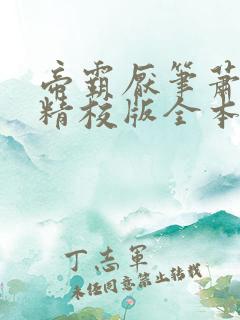 帝霸厌笔萧
精校版全本
丁志军
未经同意禁止转载